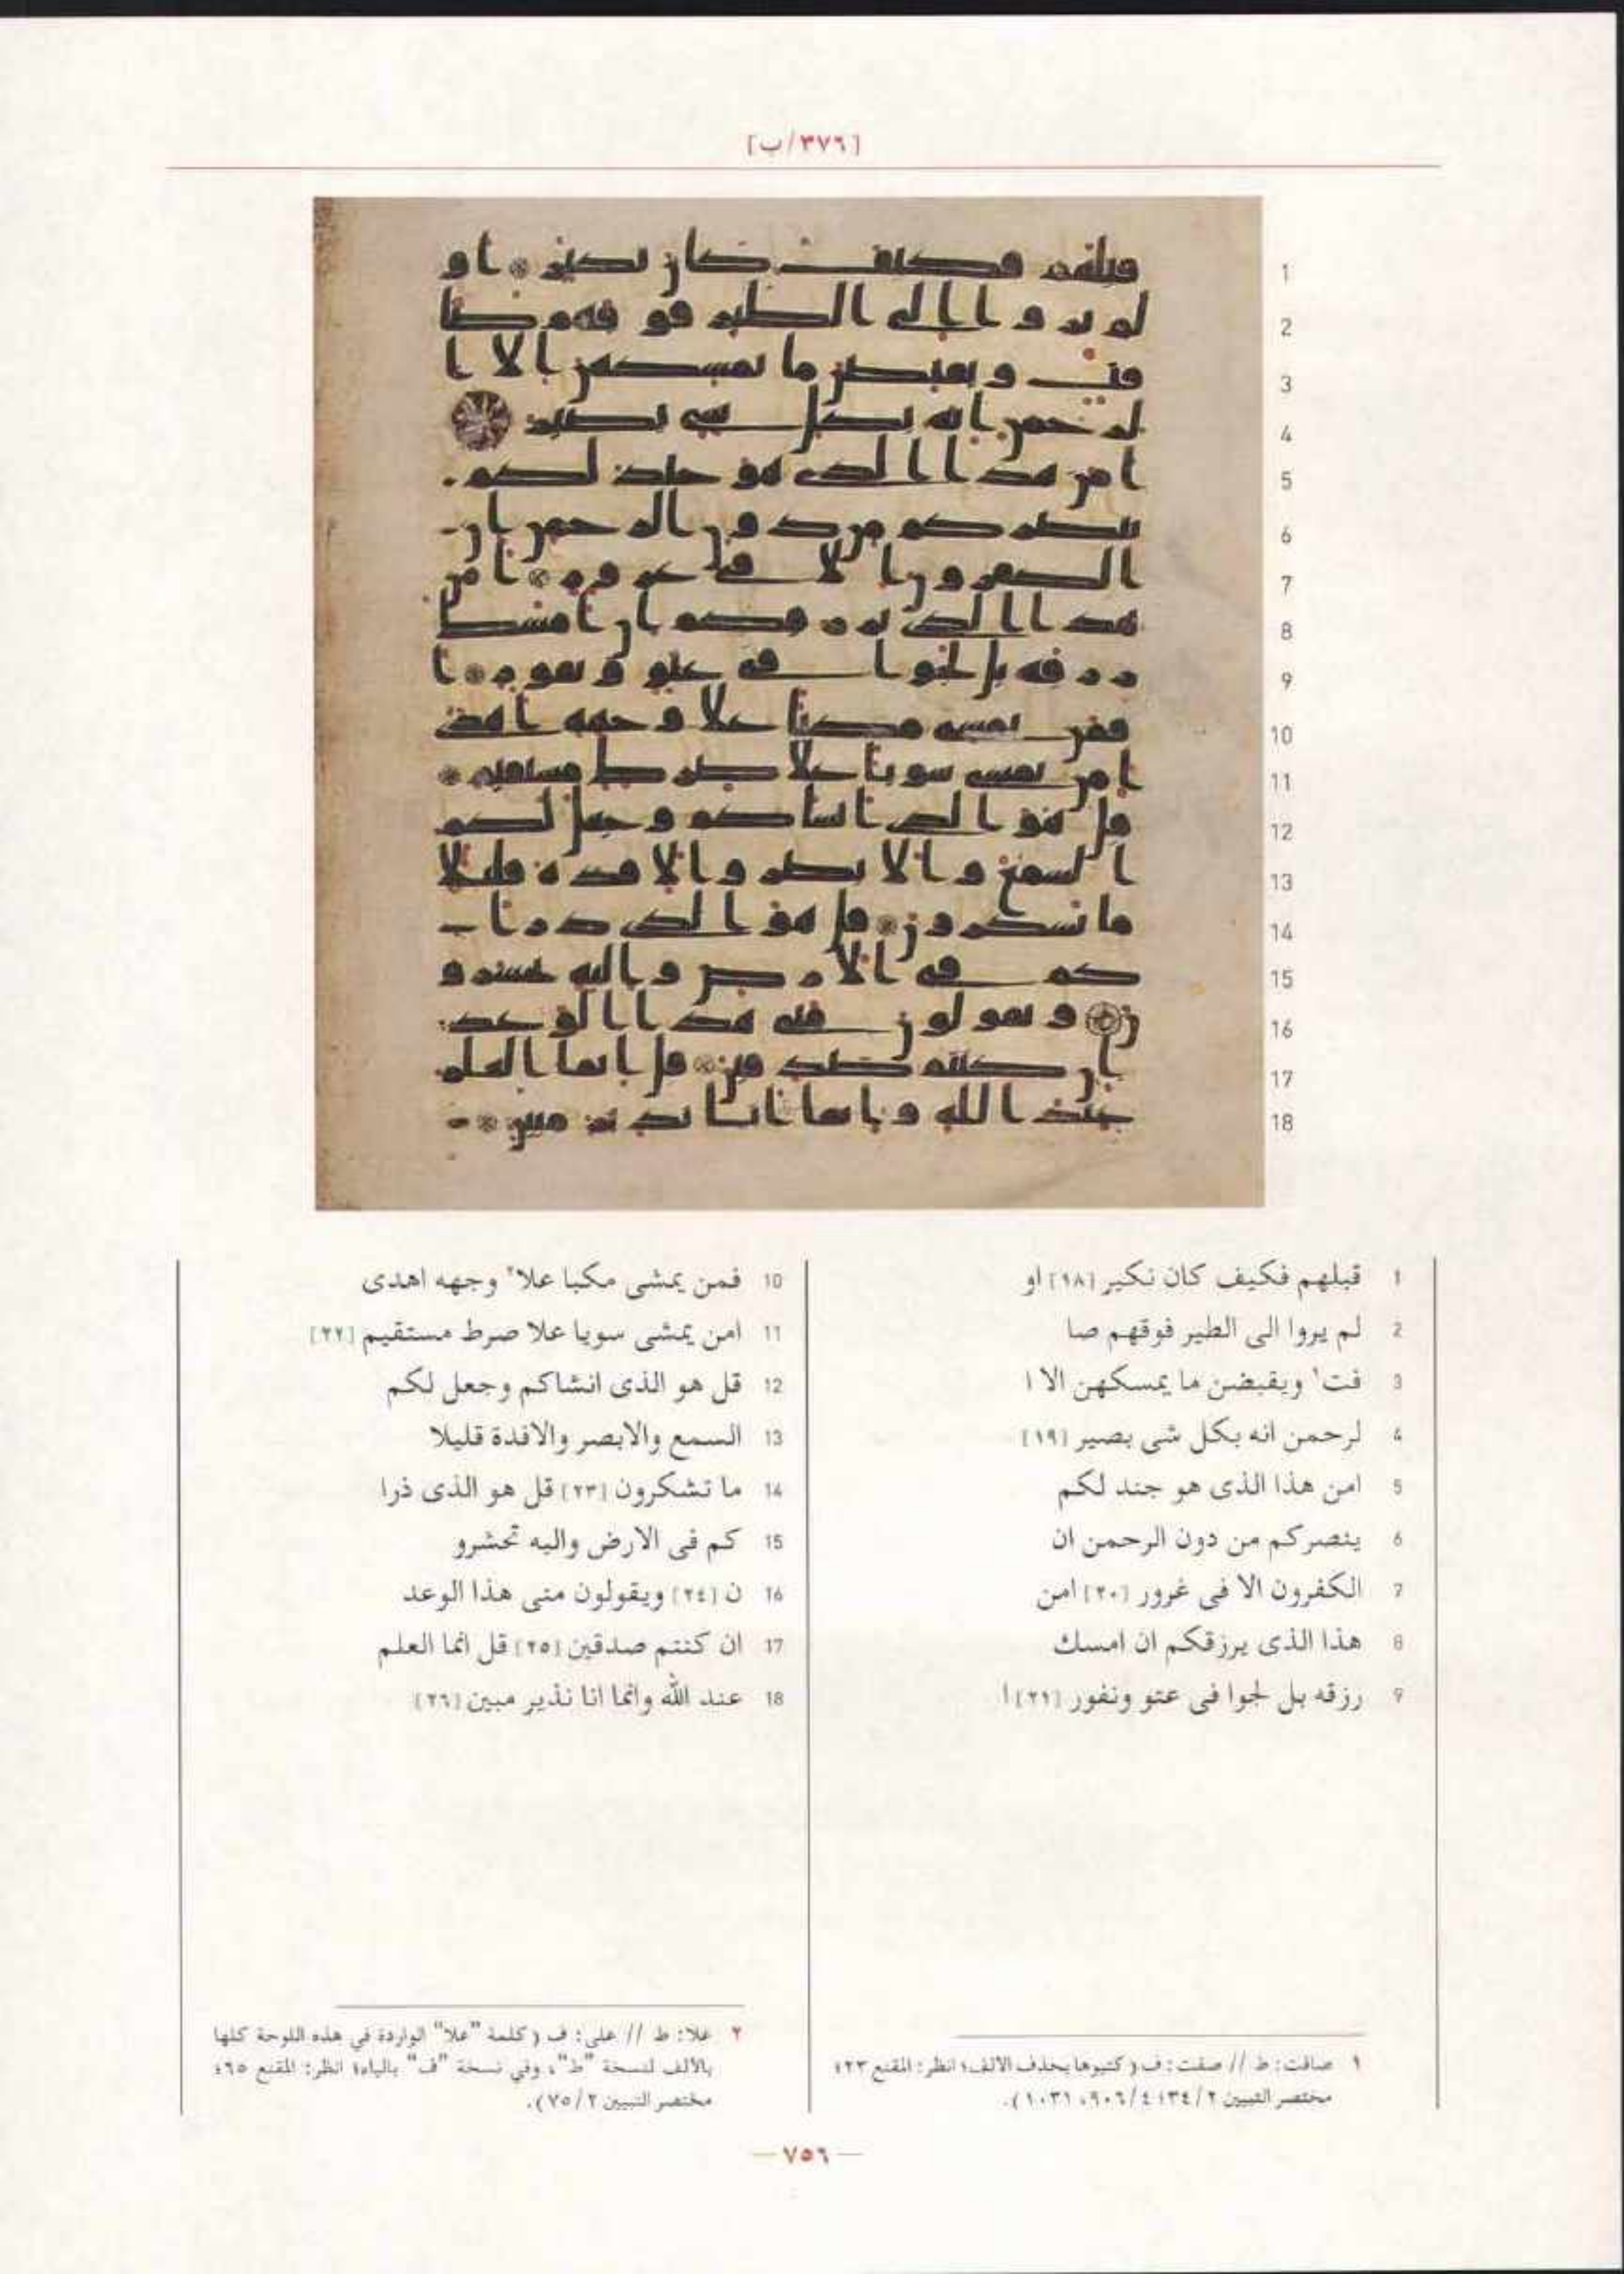 [٣٧٦/ب]
1 قبلهم فكيف كان نكير [١٨] او
2 لم يروا الى الطير فوقهم صا
3 فت١ ويقبضن ما يمسكهن الا ا
4 لرحمن انه بكل شى بصير [١٩]
5 امن هذا الذى هو جند لكم
6 ينصركم من دون الرحمن ان
7 الكفرون الا فى غرور [٢٠] امن
8 هذا الذى يرزقكم ان امسك
9 رزقه بل لجوا فى عتو ونفور [٢١] ا
10 فمن يمشى مكبا علا٢ وجهه اهدى
11 امن يمشى سويا علا صرط مستقيم [٢٢]
12 قل هو الذى انشاكم وجعل لكم
13 السمع والابصر والافدة قليلا
14 ما تشكرون [٢٣] قل هو الذى ذرا
15 كم فى الارض واليه تحشرو
16 ن [٢٤] ويقولون متى هذا الوعد
17 ان كنتم صدقين [٢٥] قل انما العلم
18 عند الله وانما انا نذير مبين [٢٦]
١ صافت: ط // صفت: ف (كتبوها بحذف الالف؛ انظر: المقنع ٢٣؛
مختصر التبيين ٢/٣٤؛ ٤/٩٠٦، ١٠٣١).
٢ علا: ط // على: ف (كلمة "علا" الواردة في هذه اللوحة كلها
بالالف لنسخة "ط"، وفي نسخة "ف" بالياء؛ انظر: المقنع ٦٥؛
مختصر التبيين ٢/٧٥).
— ٧٥٦ —